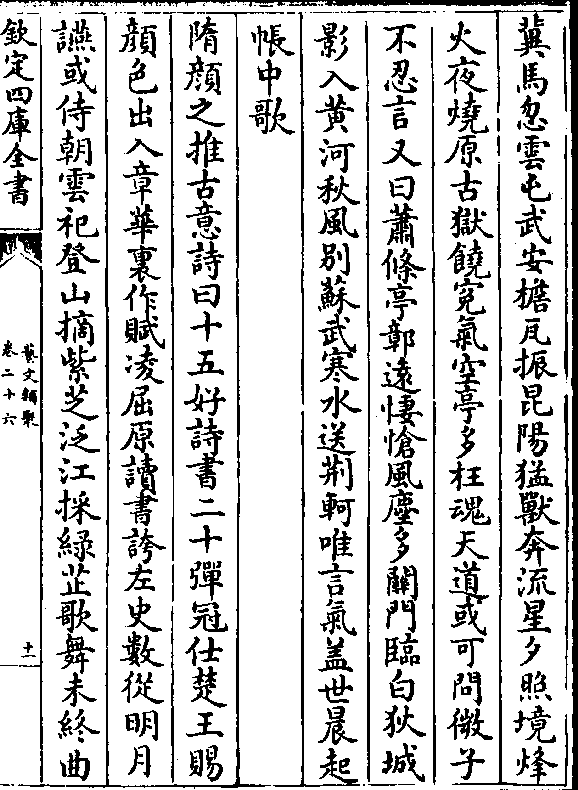 冀馬忽雲屯武安檐瓦振昆陽猛獸奔流星夕照境烽
火夜燒原古獄饒寃氣空亭多枉魂天道或可問微子
不忍言又曰蕭條亭鄣遠悽愴風塵多關門臨白狄城
影入黄河秋風别蘇武寒水送荆軻唯言氣盖世晨起
帳中歌
隋顔之推古意詩曰十五好詩書二十彈冠仕楚王賜
顔色出入章華裏作賦凌屈原讀書誇左史數從明月
讌或侍朝雲祀登山摘紫芝泛江採緑芷歌舞未終曲
欽定四庫全書
藝文類聚
卷二十六
十一